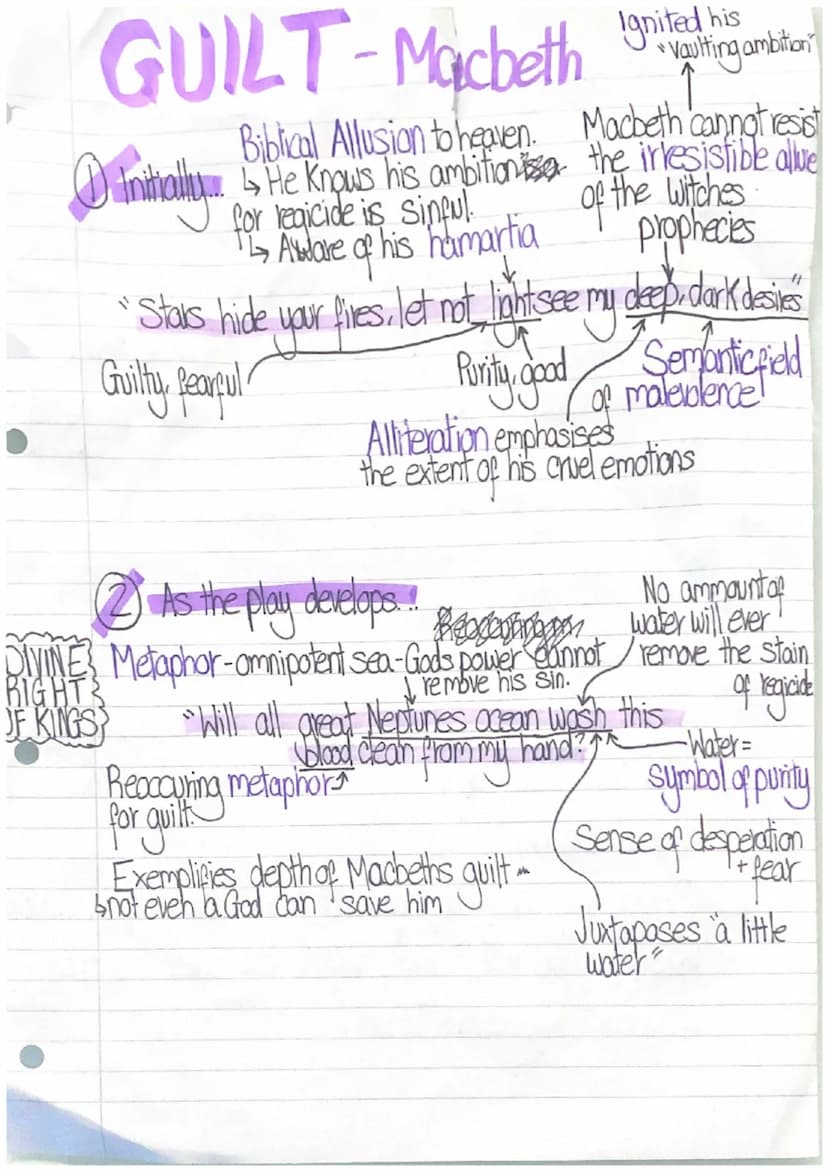 GUILT - Macbeth
Ignited his
"vaulting ambition"
Macbeth cannot resist
the irresistible allure
of the witches
prophecies
① Initially...
Biblical Allusion to heaven.
↳ He knows his ambition
for regicide is sinful.
↳ Aware of his hamartia
"Stars hide your fires, let not light see my deep, dark desires"
Guilty, fearful
Purity, good
Semantic field
of malevolence
Alliteration emphasises
the extent of his cruel emotions
② As the play develops...
DIVINE
RIGHT
OF KINGS
Metaphor - omnipotent sea-Gods power cannot
remove his sin.
No ammount of
water will ever
remove the stain
of regicide
"Will all great Neptunes ocean wash this
blood clean from my hand?"
Water =
symbol of purity
Reoccuring metaphor
for guilt.
Sense of desperation
+ fear
Exemplifies depth of Macbeths guilt
↳ not even a God can save him
Juxtaposes "a little
water"